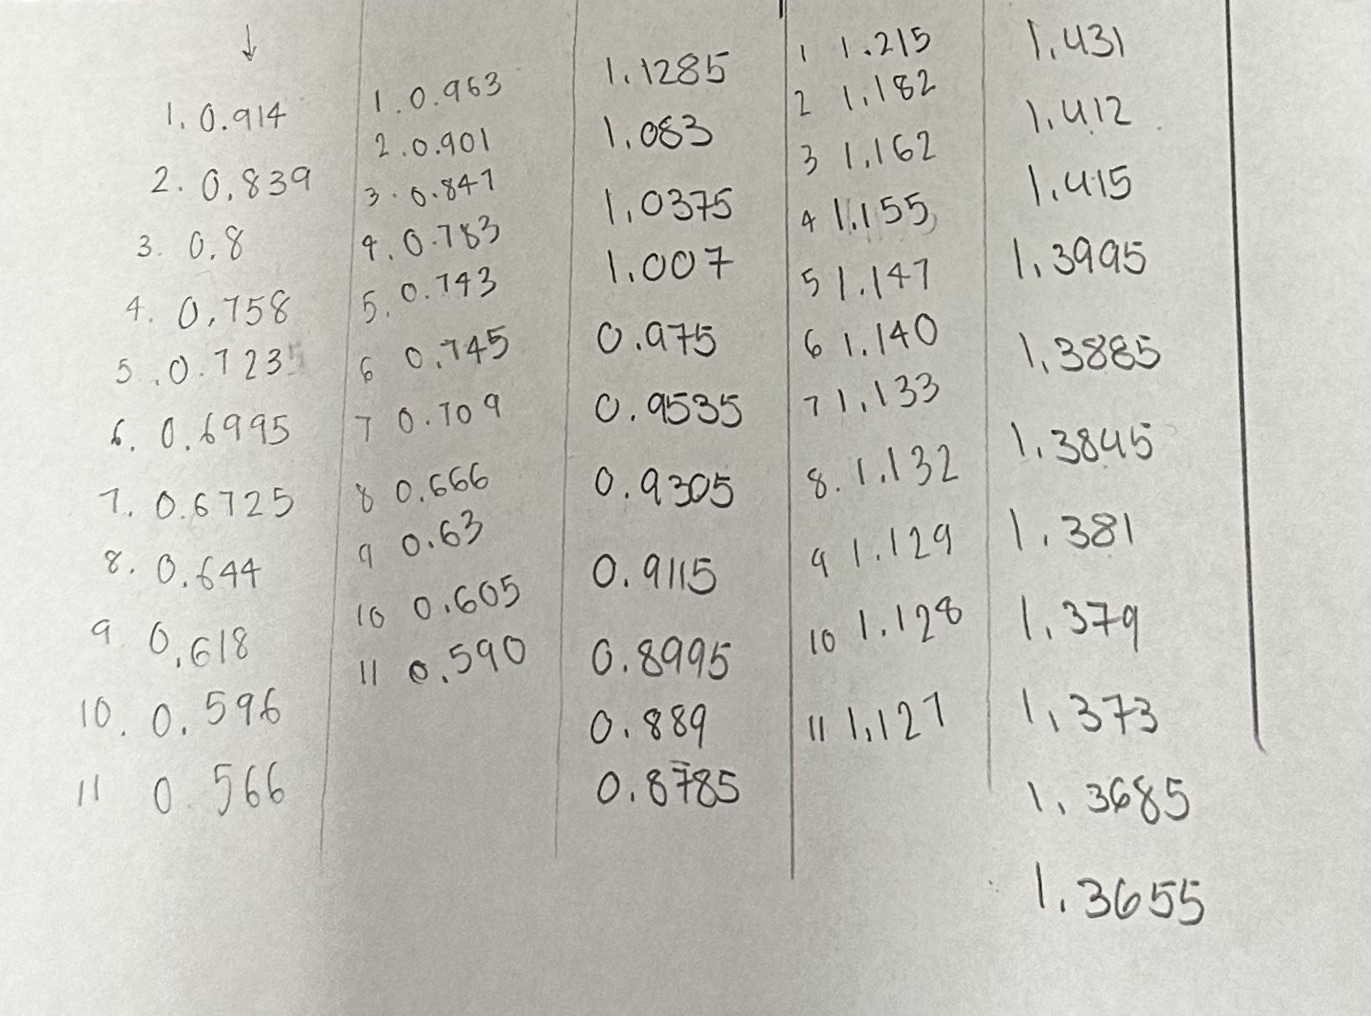 ↓
1. 0.914
2. 0.839
3. 0.8
4. 0.758
5. 0.7235
6. 0.6995
7. 0.6725
8. 0.644
9. 0.618
10. 0.596
11 0.566
1. 0.963
2. 0.901
3. 0.847
4. 0.783
5. 0.743
6 0.745
7 0.709
8 0.666
9 0.63
10 0.605
11 0.590
1.1285
1.083
1.0375
1.007
0.975
0.9535
0.9305
0.9115
0.8995
0.889
0.8785
1 1.215
2 1.182
3 1.162
4 1.155
5 1.147
6 1.140
7 1.133
8. 1.132
9 1.129
10 1.128
11 1.127
1.431
1.412
1.415
1.3995
1.3885
1.3845
1.381
1.379
1.373
1.3685
1.3655